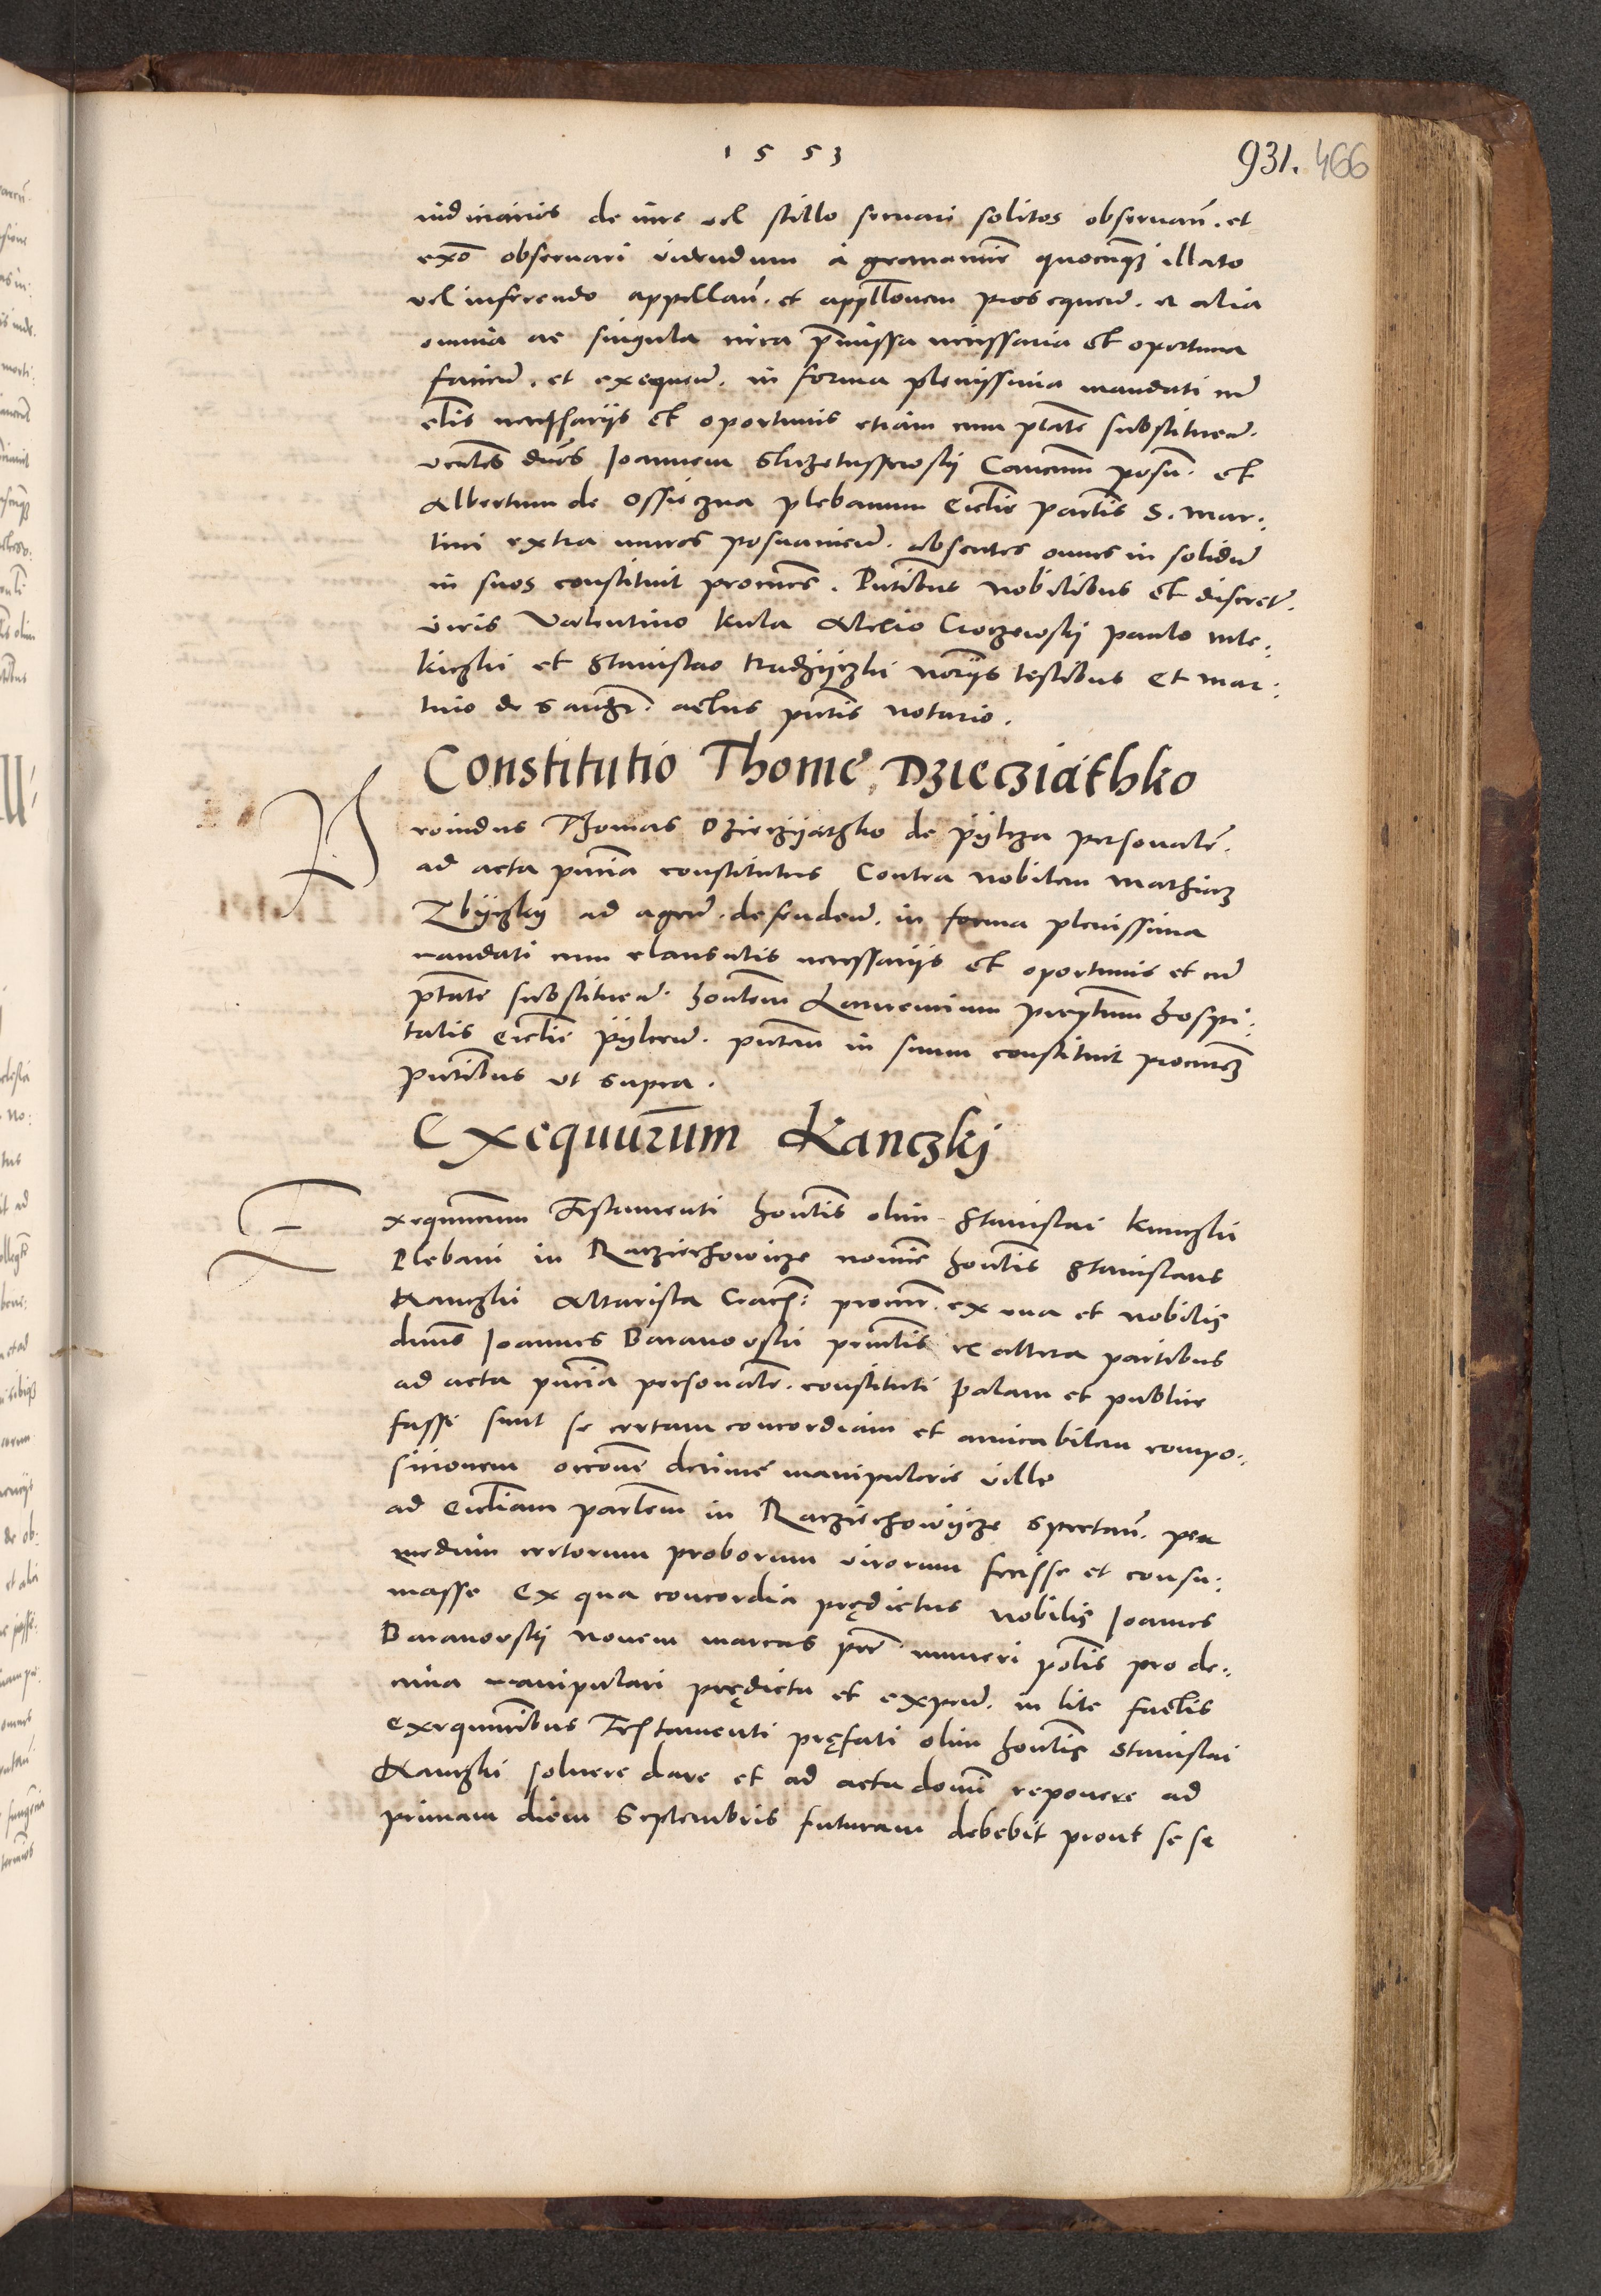 1553
931. 466
iudiciarios de iure vel stillo seruari solitos obseruan̄. et
exō obseruari videndum à grauamīe quocunq3 illato
vel inferendo appellan̄. et appllōnem prosequen̄. et alia
omnia ac singula circa p̄missa necessaria et oportuna
facien̄. et exequen̄. in forma plenissima mandati cū
clīs necessarijs et oportunis etiam cum ptāte substituen̄.
ven̄les dnōs Joannem Canc̄um posn̄. et
Albertum de Ossieczna plebanum Ecclīe par̄lis S. Mar:
tini extra muros posnanien̄. absentes omnes in solidū
in suos constituit procures. Pn̄tibus nobilibus et discret̄.
viris Valentino Kula Alexio Croczewskÿ paulo
et Stanislao notrijs testibus et Mar:
tino de actus pn̄tis notario.
Constitutio Thome Dzieczіathko
Rouindus Thomas Dzieczÿathko de pÿlcza personalr̄.
ad acta pn̄tia constitutus Contra nobilem Mathiam
Zbÿczkÿ ad agen̄. defenden̄. in forma plenissima
mandati cum clausulis necessarijs et oportunis et cū
ptāte substituen̄. hon̄lem Laurencium prep̄tum hospi:
talis Ecclīe pÿlcen̄. pn̄tem in suum constituit procur̄em
Pn̄tibus vt supra.
Exequut̄rum Kanczkj
Exequutorum Testamenti hon̄lis olim Stanislai Kanczki
Plebani in Raczÿechowicze nomīe hon̄lis Stanislaus
Kanczki Altarista Crac̄: procur̄. ex vna et nobilis
dn̄us Joannes Baranovski prin̄lis ex altera partibus
ad acta pn̄tia personalr̄. constituti palam et publice
fassi sunt se certam concordiam et amicabilem compo:
sicionem occōne decime manipularis ville
ad Ecclīam par̄lem in Raczÿechowÿcze spectan̄. per
medium certorum proborum virorum fecisse et consu:
masse Ex qua concordia prędictus nobilis Joannes
Baranovskÿ nouem marcas pec̄. numeri polīs pro de:
cima manipulari prędicta et expen̄. in lite factis
exequutoribus Testamenti pręfati olim hon̄lis Stanislai
Kanczki soluere dare et ad acta domī reponere ad
primam diem Septembris futuram debebit prout se se